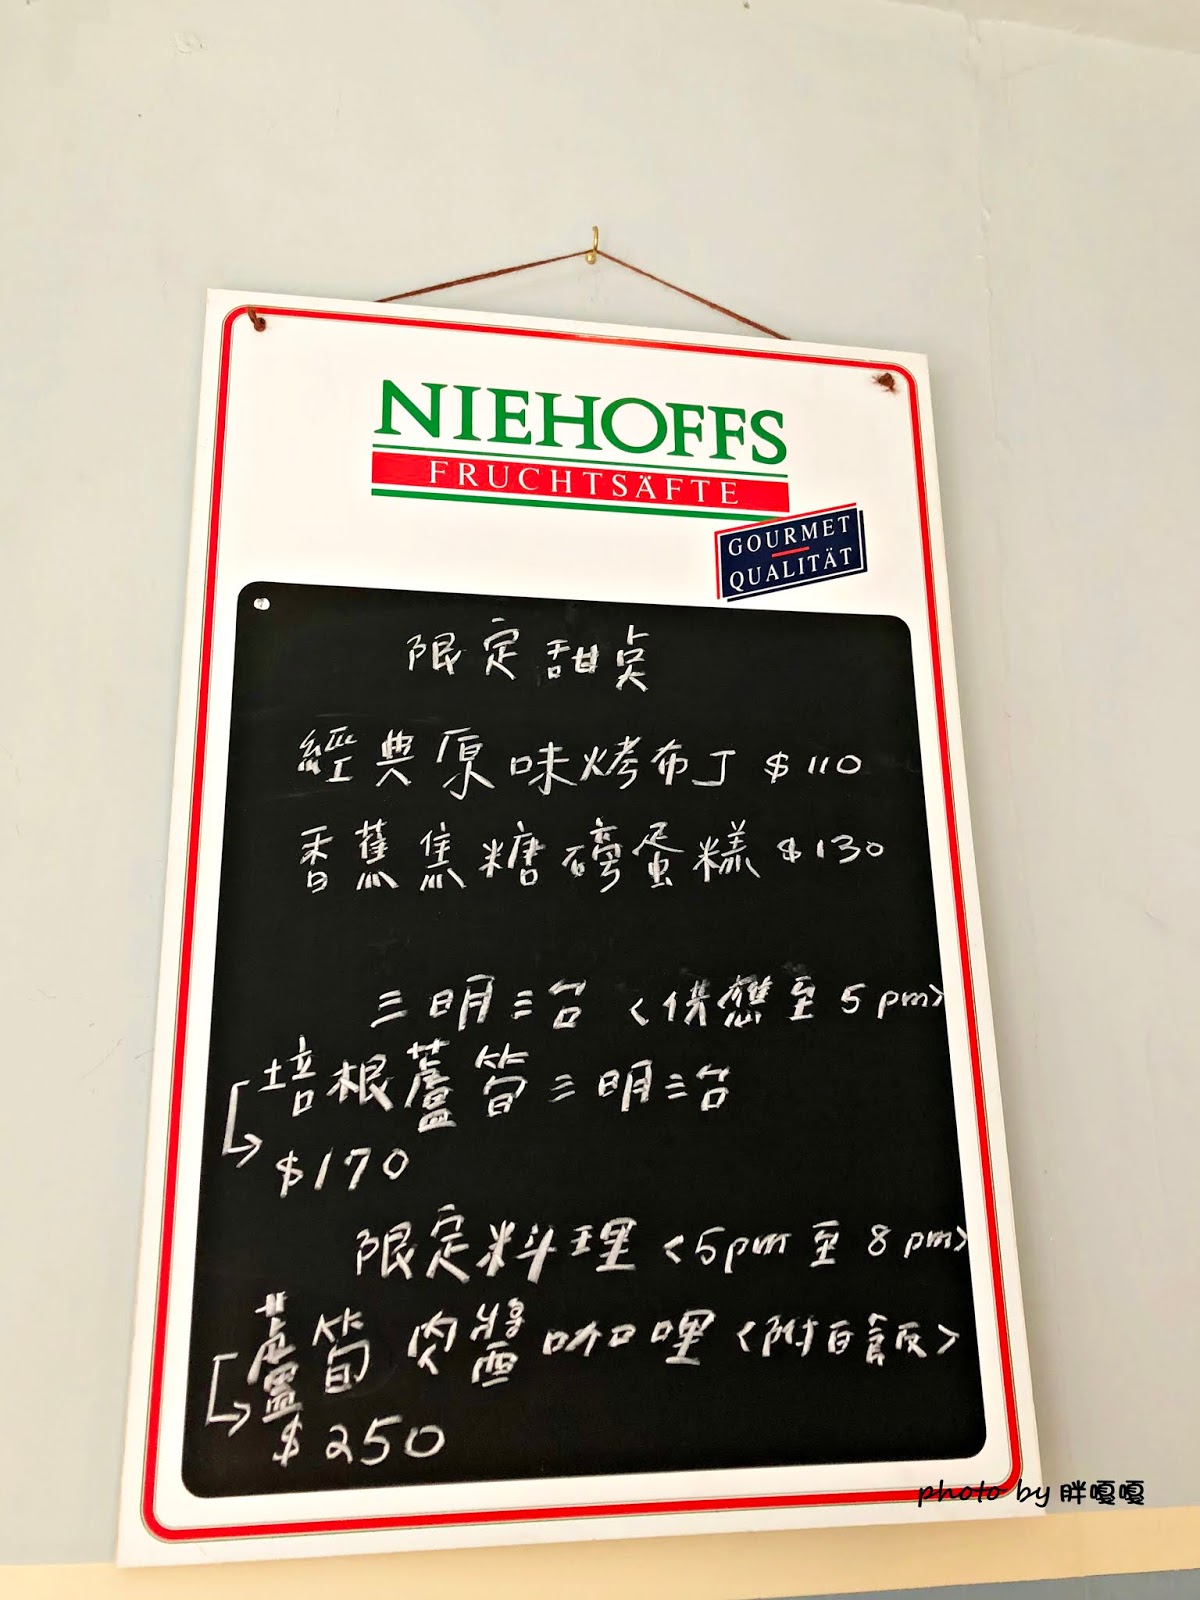 NIEHOFFS
FRUCHTSÄFTE
GOURMET
QUALITÄT
限定甜点
經典原味烤布丁 $110
香蕉焦糖磅蛋糕 $130
三明治 <供應至 5pm>
培根蘆筍三明治
$170
限定料理 <5pm至 8pm>
蘆筍肉醬咖哩 <附白飯>
$250
photo by 胖嘎嘎